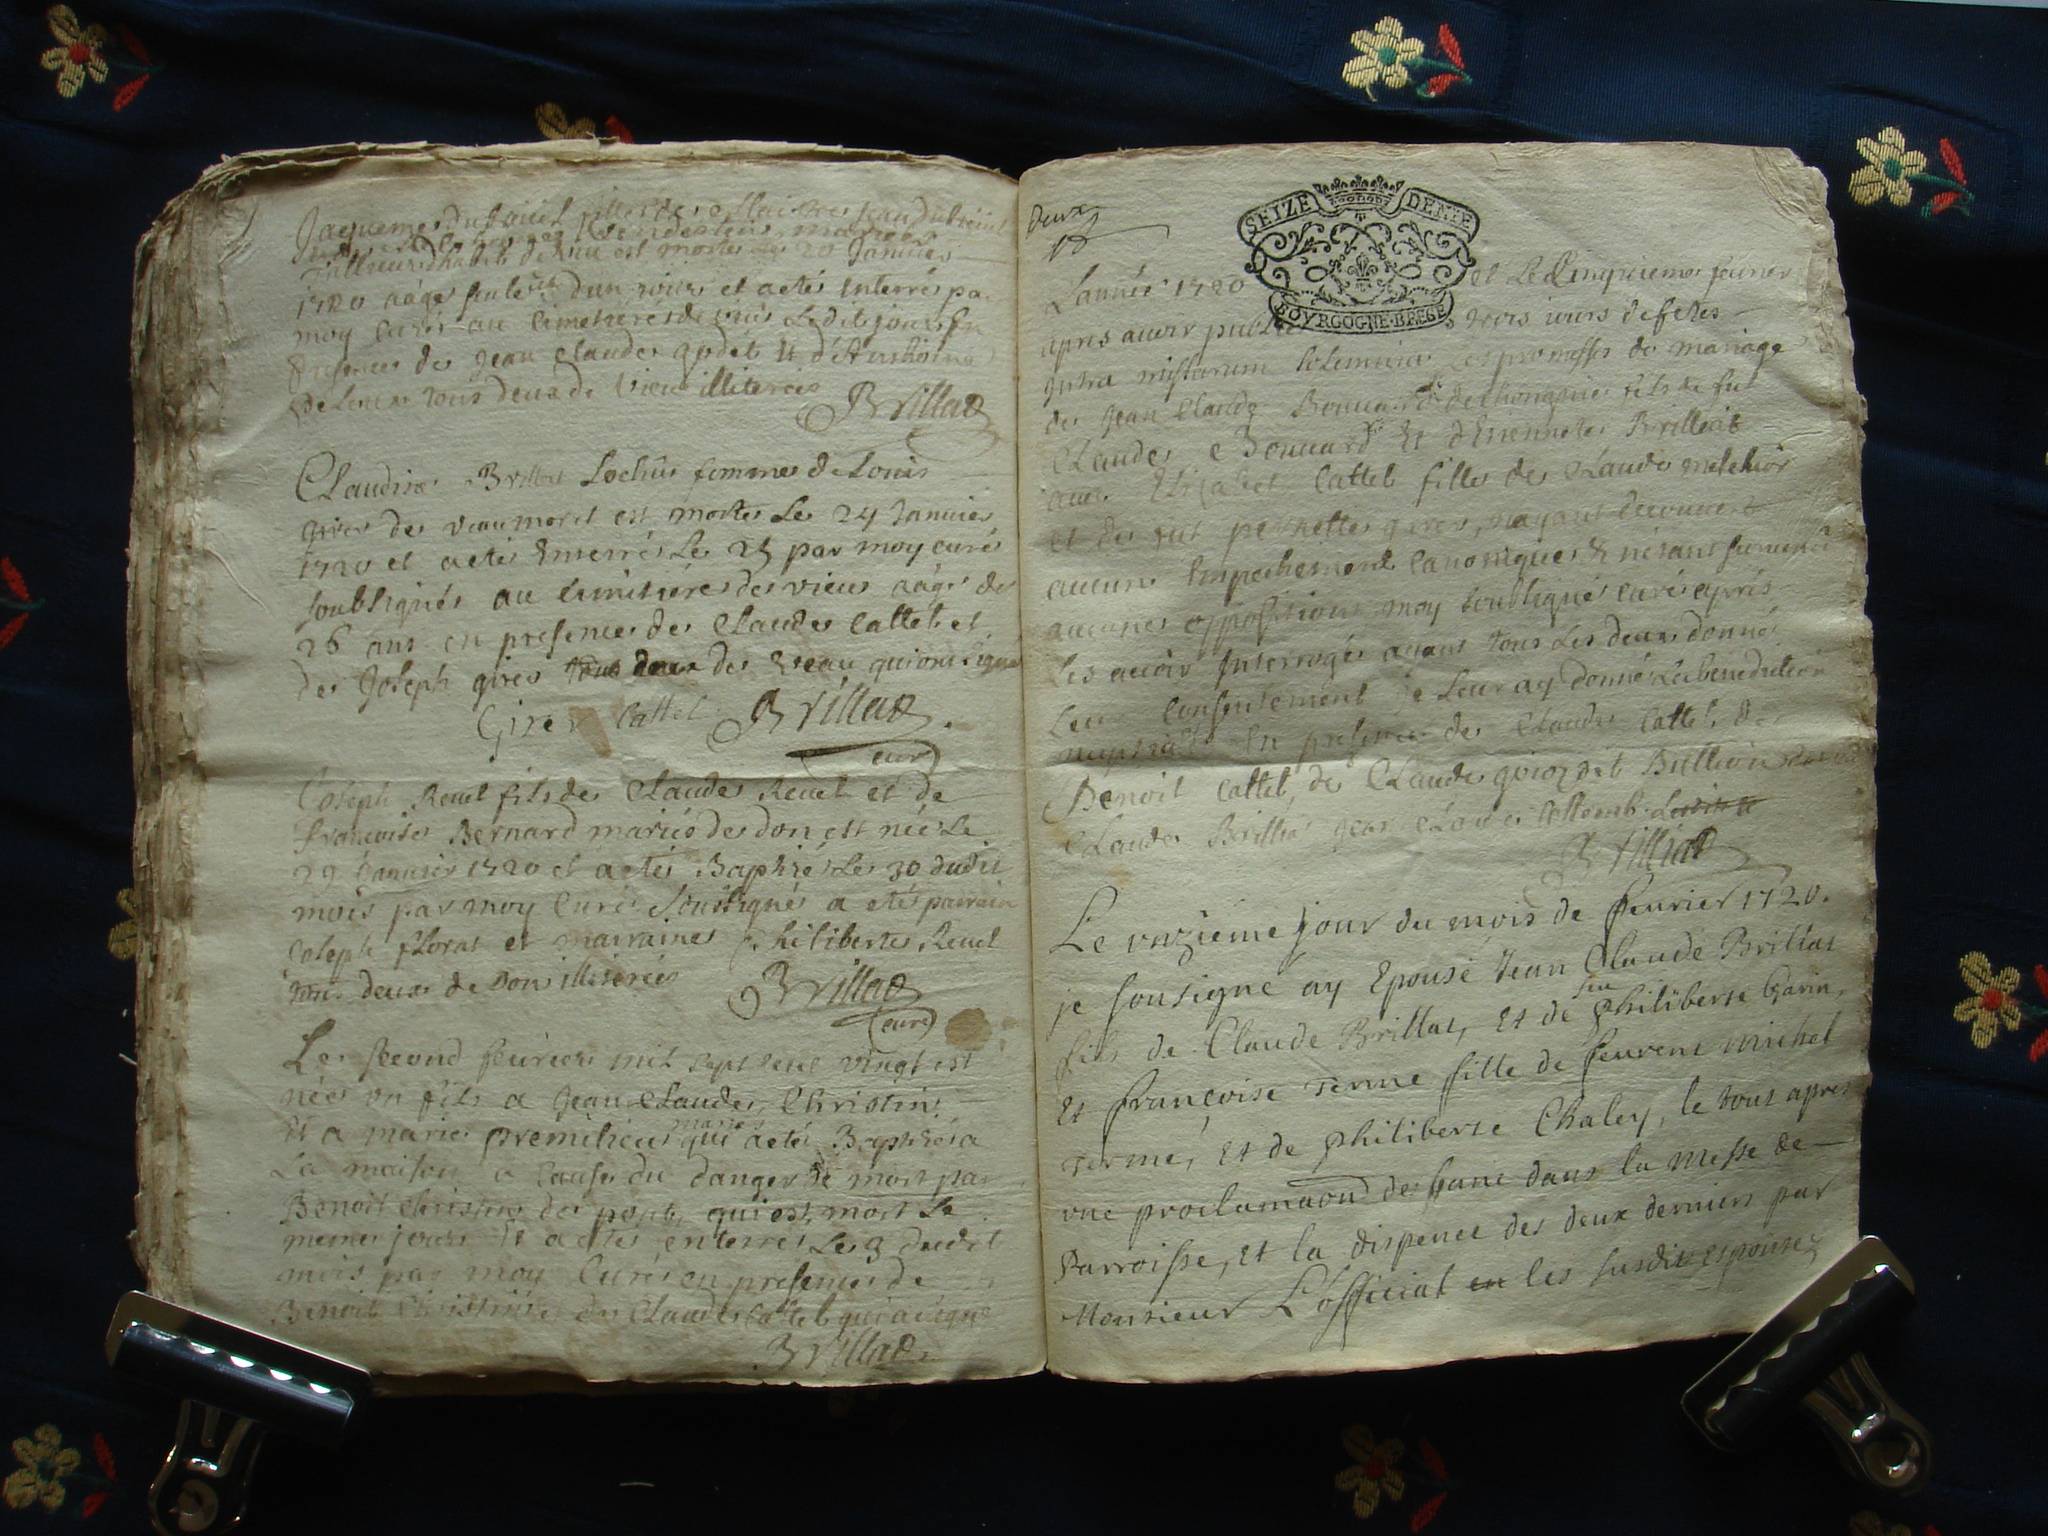 est morte le 20 Janvier
1720 aage seulemt dun jour et a eté interré par
moy curé au cimetiere de vieu ledit jour en
presence de Jean Claude godet et d'Anthoine
tous deux de vieu illiterés
Brillat
Claudine Brillat Lochin femme de Louis
girer de vaumoret est morte Le 24 Janvier
1720 et a eté Enterré Le 25 par moy curé
soubsigné au cimitiere de vieu aagé de
26 ans en presence de Claude Cattel et
de Joseph girer tous deux de qui ont signé
Girer Cattel Brillat
curé
Joseph Revel fils de Claude Revel et de
françoise Bernard mariés de don est né Le
29 Janvier 1720 et a eté Baptizé Le 30 dudit
mois par moy Curé Soussigné a eté parrain
Joseph floras et marraine philiberte Revel
tous deux de Don illiterés Brillat
(curé)
Le second feurier mil sept cent vingt est
né un fils a Jean Claude Christin
et a marie premilieu mariés qui a eté Baptizé a
La maison a Cause du danger de mort par
Benoit Christin de qui est mort Le
meme jour Et a eté enterré Le 3 dudit
mois par moy Curé en presence de
Benoit Christin de Claude Cattel qui a signé
Brillat
Deux
SEIZE DENIE
BOVRGOGNE·BREGE
Lannée 1720 et Le Cinquieme feurier
apres auoir publié trois iours de fetes
Intra missarum solemnia Les promesses de mariage
de Jean Claude Bouuard de fils de fu
Claude Bouuard Et d'Etiennete Brilliat
auec Elizabet Cattel fille de Claude melchior
et de fut pernette girer, nayant decouuert
aucune Empechement Canonique & nétant suruenu
aucune opposition moy soubsigné curé aprés
Les auoir Interrogés ayant tous Les deux donné
Leur Consentement je Leur ay donné La benediction
nuptiale En presence de Claude Cattel de
Benoit Cattel de Claude dit Bullion
Claude Brillia Jean
Brilliat
Le vnzieme jour du mois de feurier 1720.
je sousigne ay Epousé Jean Claude Brillat
fils de Claude Brillat, et de feu philiberte Garin,
Et françoise Terme fille de feurent michel
Terme, Et de philiberte Chaley, le tout apres
vne proclamaon de banc dans la messe de
Parroisse, Et la dispence des deux derniers par
Monsieur L'official en les susdits Espouse